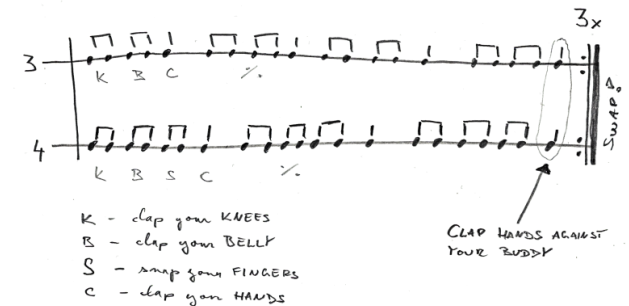 3x
3
K B C ٪
4
K B S C ٪
SWAP!
K - clap your KNEES
B - clap your BELLY
S - snap your FINGERS
C - clap your HANDS
CLAP HANDS AGAINST
YOUR BUDDY